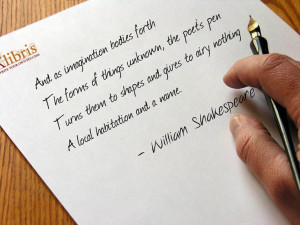 libris
And as imagination bodies forth
The forms of things unknown, the poet's pen
Turns them to shapes and gives to airy nothing
A local habitation and a name.
- William Shakespeare